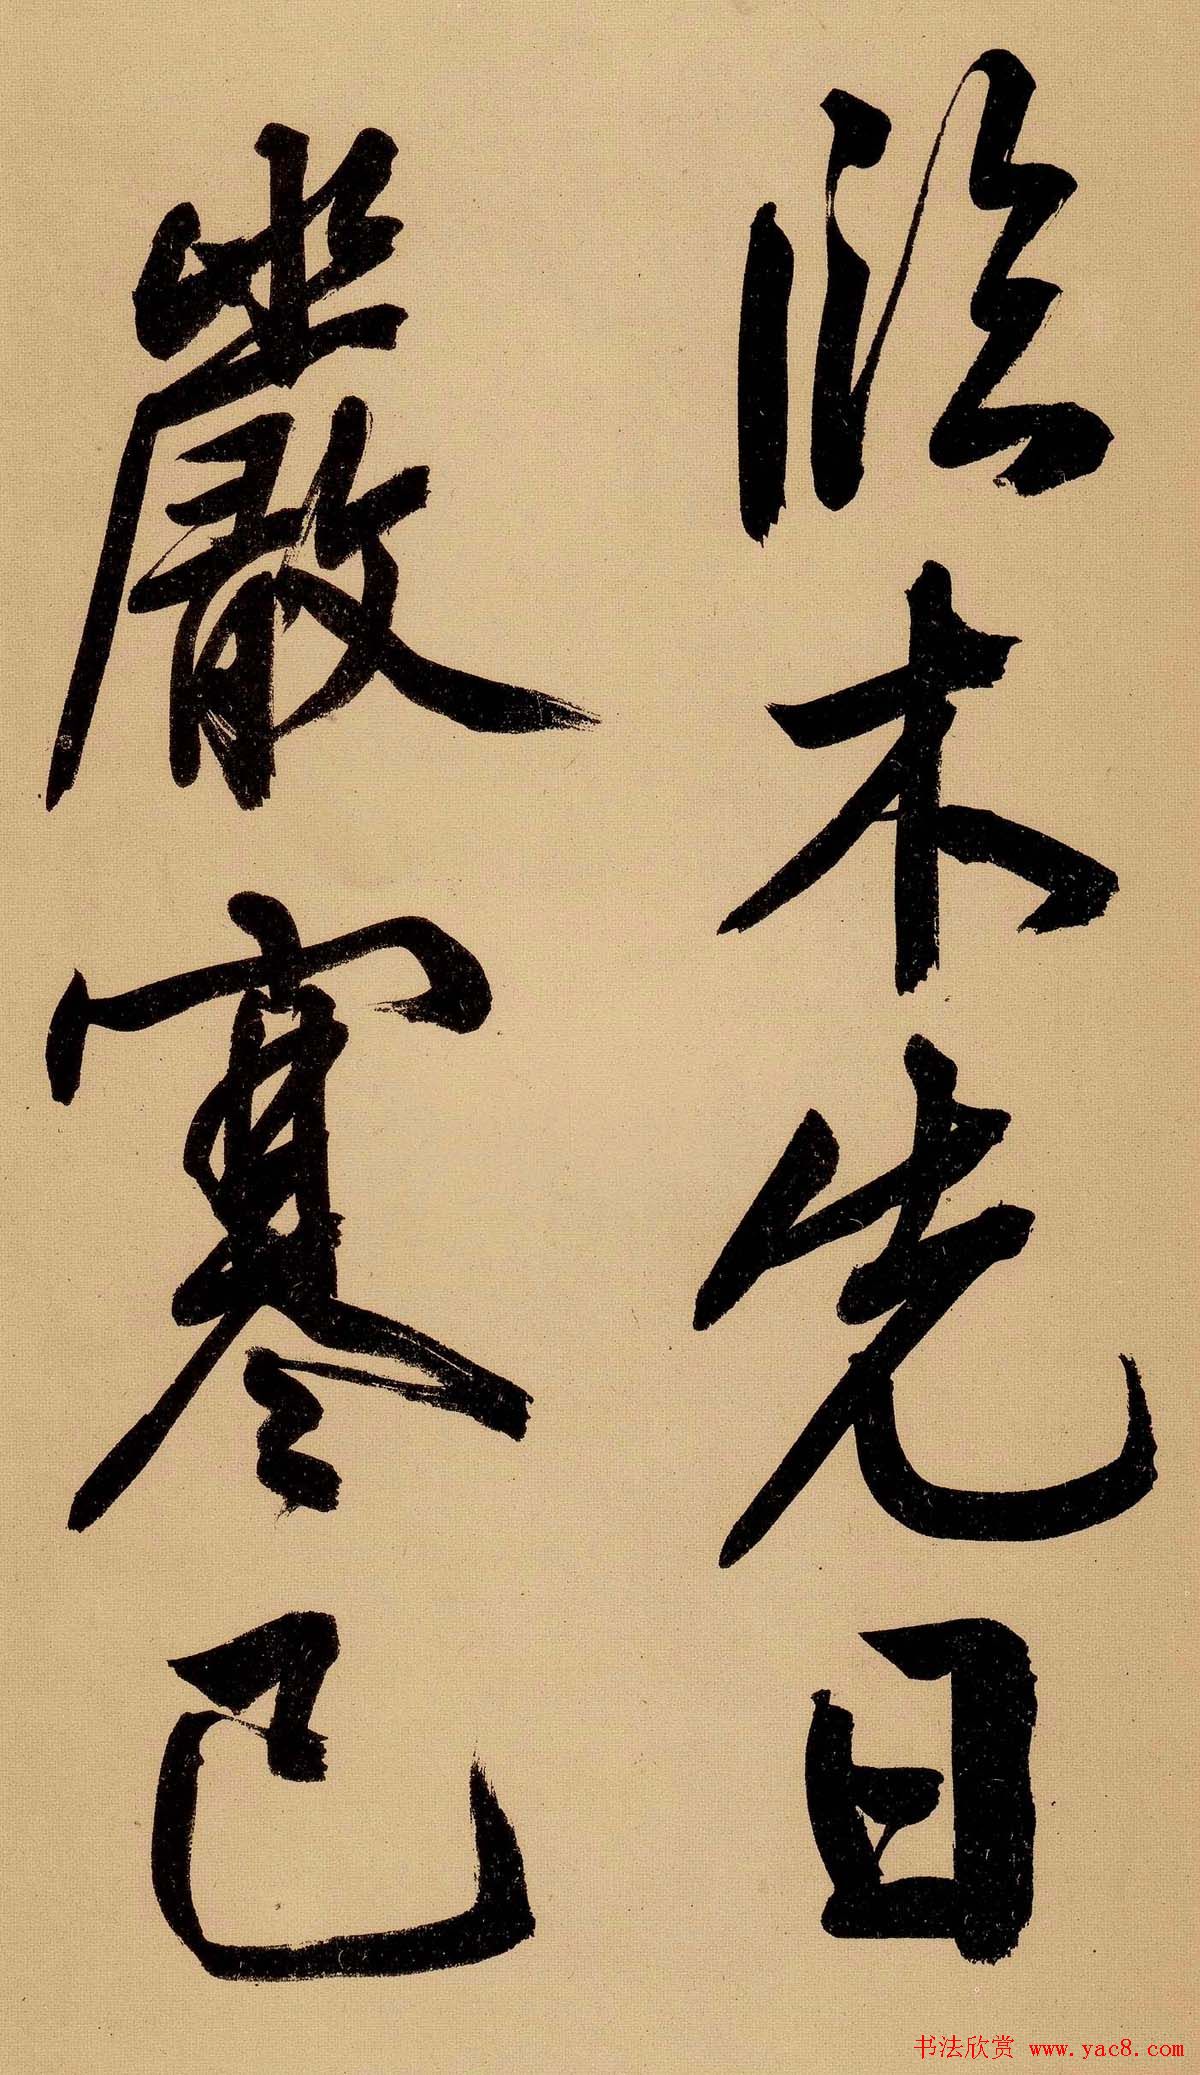 臨木先日
嚴寒已
书法欣赏 www.yac8.com